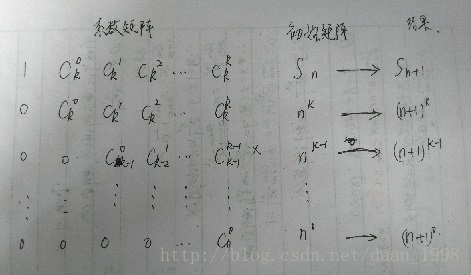 系数矩阵 初始矩阵 结果.
1 C_k^0 C_k^1 C_k^2 ... C_k^k S_n → S_{n+1}
0 C_k^0 C_k^1 C_k^2 ... C_k^k n^k → (n+1)^k
0 0 C_{k-1}^0 C_{k-2}^1 ... C_{k-1}^{k-1} × n^{k-1} → (n+1)^{k-1}
⋮ ⋮ ⋮ ⋮ ⋮ ⋮
0 0 0 0 ... C_0^0 n^0 → (n+1)^0.
http://blog.csdn.net/duan_1998